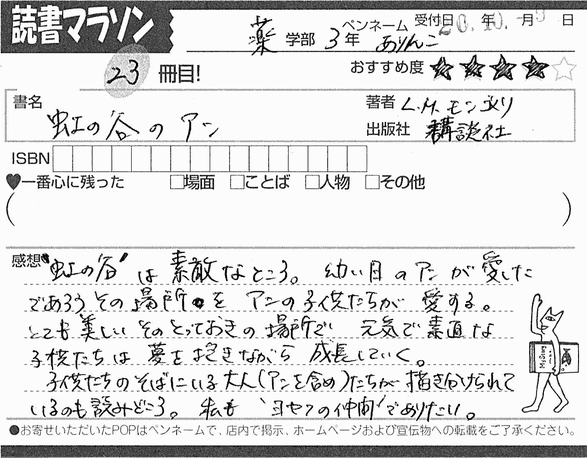 読書マラソン
薬 学部 3年 ペンネーム ありんこ 受付日 20年10月 日
23 冊目! おすすめ度 ★★★★☆
書名 虹の谷のアン
著者 L.M.モンゴメリ
出版社 講談社
ISBN
♥一番心に残った □場面 □ことば □人物 □その他
( )
感想 "虹の谷"は素敵なところ。幼い日のアンが愛した
であろうその場所をアンの子供たちが愛する。
とても美しいそのとっておきの場所で元気で素直な
子供たちは夢を抱きながら成長していく。
子供たちのそばにいる大人(アンを含め)たちが描き分けられて
いるのも読みどころ。私も"ヨセフの仲間"でありたい。
●お寄せいただいたPOPはペンネームで、店内で掲示、ホームページおよび宣伝物への転載をご了承ください。